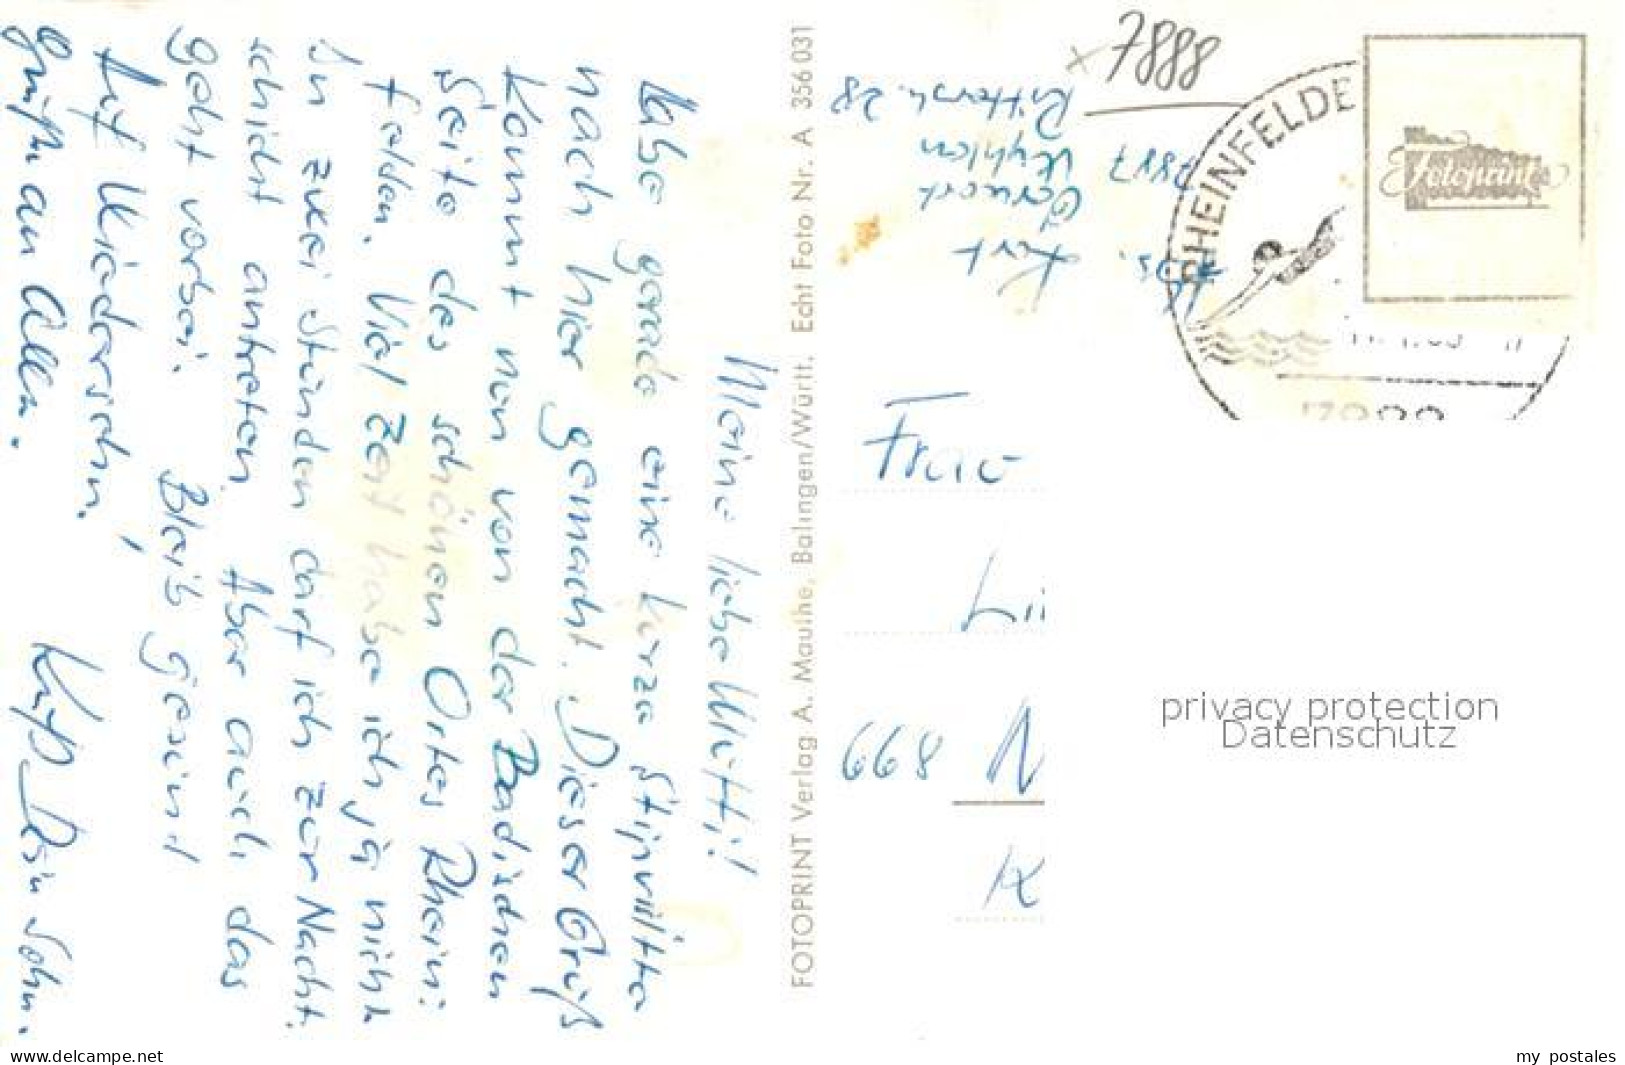 Meine liebe Mutti!
Habe gerade eine kurze Stipviitte
nach hier gemacht. Dieser Gruß
kommt nun von der Badischen
Seite des schönen Ortes Rhein:
felden. Viel Zeit habe ich ja nicht
In zwei Stunden darf ich zur Nacht:
schicht antreten. Aber auch das
geht vorbei. Bleib gesund
Auf Wiedersehn!
Grüße an Alle. Dein Sohn.
FOTOPRINT Verlag A. Mauthe, Balingen/Württ. Echt Foto Nr. A 356 031
7888
Abs. Kurt
Gerwert
7887
Ritterstr. 28
RHEINFELDE
Fotoprint
Frau
Lii
668 N
K
privacy protection
Datenschutz
www.delcampe.net
my postales